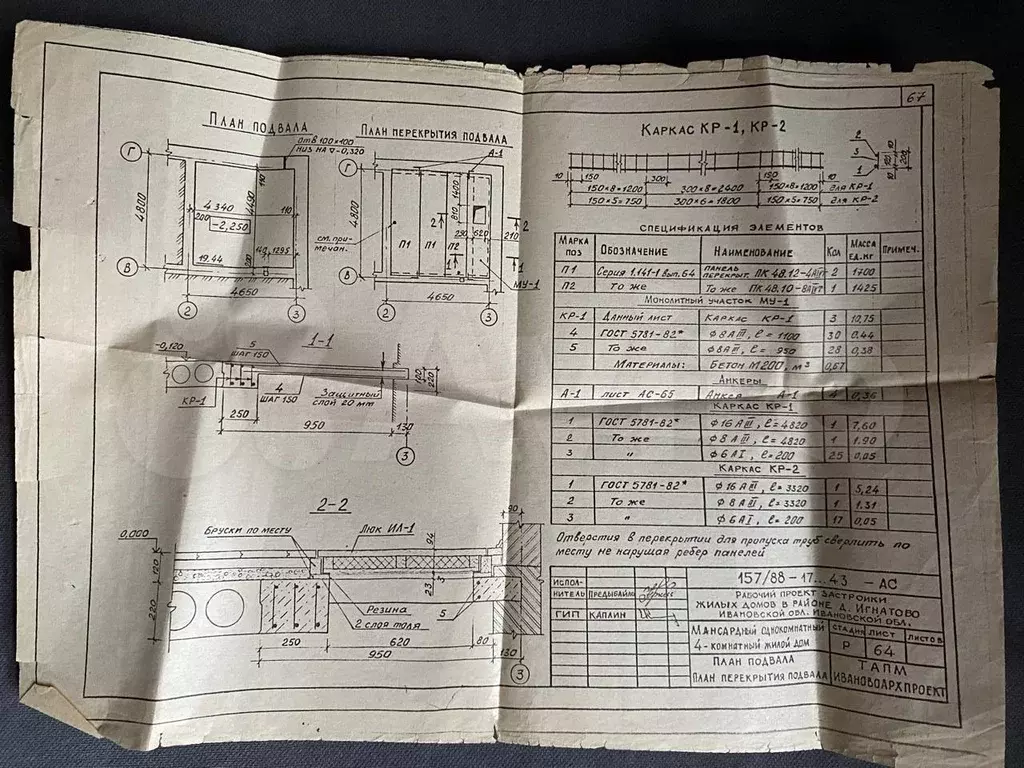 67
План подвала
отв 100×100
низ на ▽-0,320
Г
В
4800
4340
4490
110
110
200
-2,250
140
1295
19.44
200
4650
2
3
План перекрытия подвала
А-1
Г
В
4800
1400
810
2
2
250
620
210
см. при-
мечан.
П1
П1
П2
1
1
МУ-1
4650
2
3
1-1
-0,120
5
шаг 150
КР-1
4
шаг 150
Защитный
слой 20 мм
250
950
130
100
220
3
2-2
Бруски по месту
Люк ИЛ-1
94
90
0,000
120
220
23
3
Резина
2 слоя толя
5
250
620
80
950
130
3
Каркас КР-1, КР-2
2
3
1
10
150
300
150
10
150×8=1200
300×8=2400
150×8=1200
для КР-1
150×5=750
300×6=1800
150×5=750
для КР-2
200
Спецификация элементов
Марка поз
Обозначение
Наименование
Кол
Масса ед.кг
Примеч.
П1 Серия 1.141-1 вып.64 Панель перекрыт. ПК 48.12- 2 1700
П2 То же То же ПК 48.10- 1 1425
Монолитный участок МУ-1
КР-1 Данный лист Каркас КР-1 3 10,75
4 ГОСТ 5781-82* Φ8АIII, ℓ=1100 30 0.44
5 То же Φ8АIII, ℓ= 950 28 0,38
Материалы: Бетон М200, м³ 0,67
Анкеры
А-1 лист АС-65 Анкер А-1 4 0,36
Каркас КР-1
1 ГОСТ 5781-82* Φ16АIII, ℓ=4820 1 7,60
2 То же Φ8АIII, ℓ=4820 1 1.90
3 " Φ6АI, ℓ=200 25 0,05
Каркас КР-2
1 ГОСТ 5781-82* Φ16АIII, ℓ=3320 1 5,24
2 То же Φ8АIII, ℓ=3320 1 1.31
3 " Φ6АI, ℓ=200 17 0,05
Отверстия в перекрытии для пропуска труб сверлить по
месту не нарушая ребер панелей
Испол-
нитель Предыбайло
ГИП Каплин
157/88-17...43 -АС
Рабочий проект застройки
жилых домов в районе д. Игнатово
Ивановской обл. Ивановской обл.
Мансардный однокомнатный
4-комнатный жилой дом
Стадия Лист Листов
Р 64
План подвала
План перекрытия подвала
ТАПМ
Ивановоархпроект